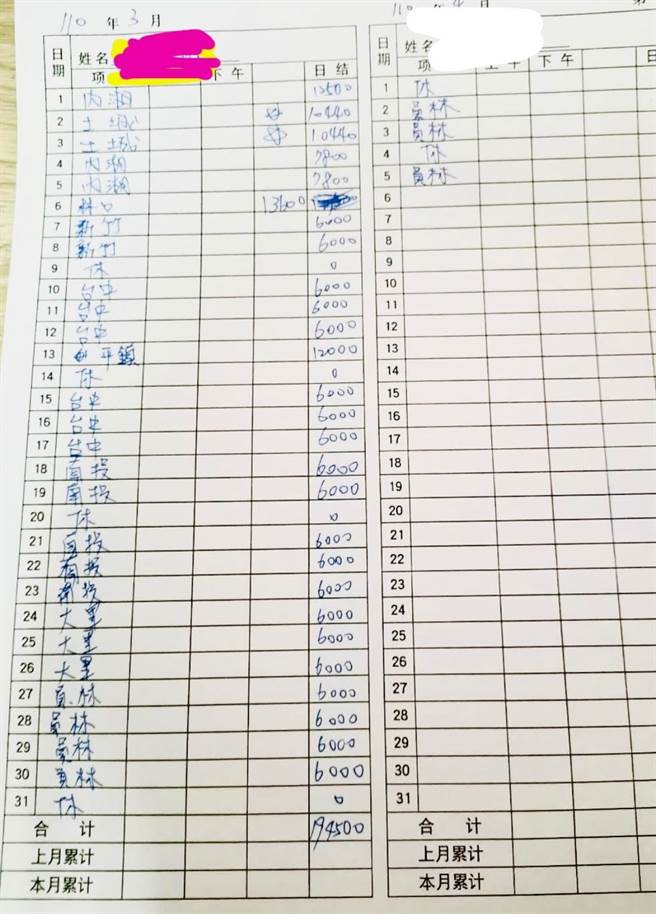 110 年 3 月
日期 姓名
项 下午 日结
1 內湖
2 土城 10440
3 土城 10440
4 內湖 7800
5 內湖 7800
6 林口 13600
7 新竹 6000
8 新竹 6000
9 休 0
10 台中 6000
11 台中 6000
12 台中 6000
13 平鎮 12000
14 休 0
15 台中 6000
16 台中 6000
17 台中 6000
18 南投 6000
19 南投 6000
20 休 0
21 南投 6000
22 南投 6000
23 南投 6000
24 大里 6000
25 大里 6000
26 大里 6000
27 員林 6000
28 員林 6000
29 員林 6000
30 員林 6000
31 休 0
合计 194500
上月累计
本月累计
110 年 4 月
日期 姓名
项 上午 下午
1 休
2 員林
3 員林
4 休
5 員林
6
7
8
9
10
11
12
13
14
15
16
17
18
19
20
21
22
23
24
25
26
27
28
29
30
31
合计
上月累计
本月累计